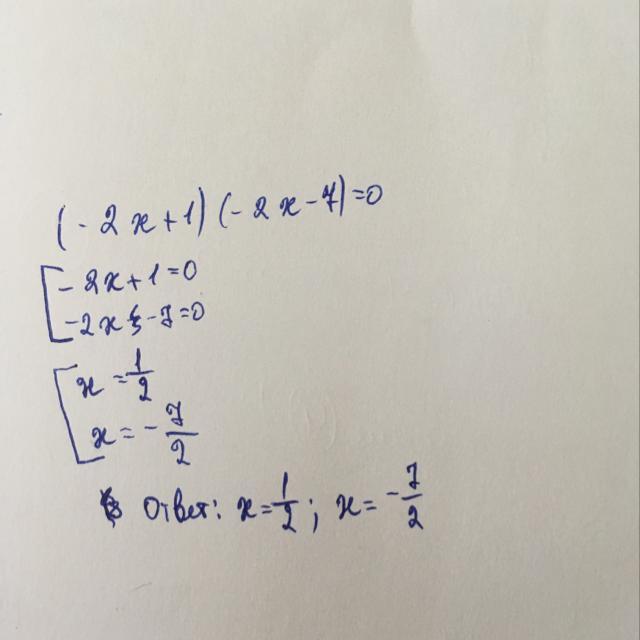 (-2x+1)(-2x-7)=0
[-2x+1=0
-2x-7=0
[x=1/2
x=-7/2
Ответ: x=1/2; x=-7/2